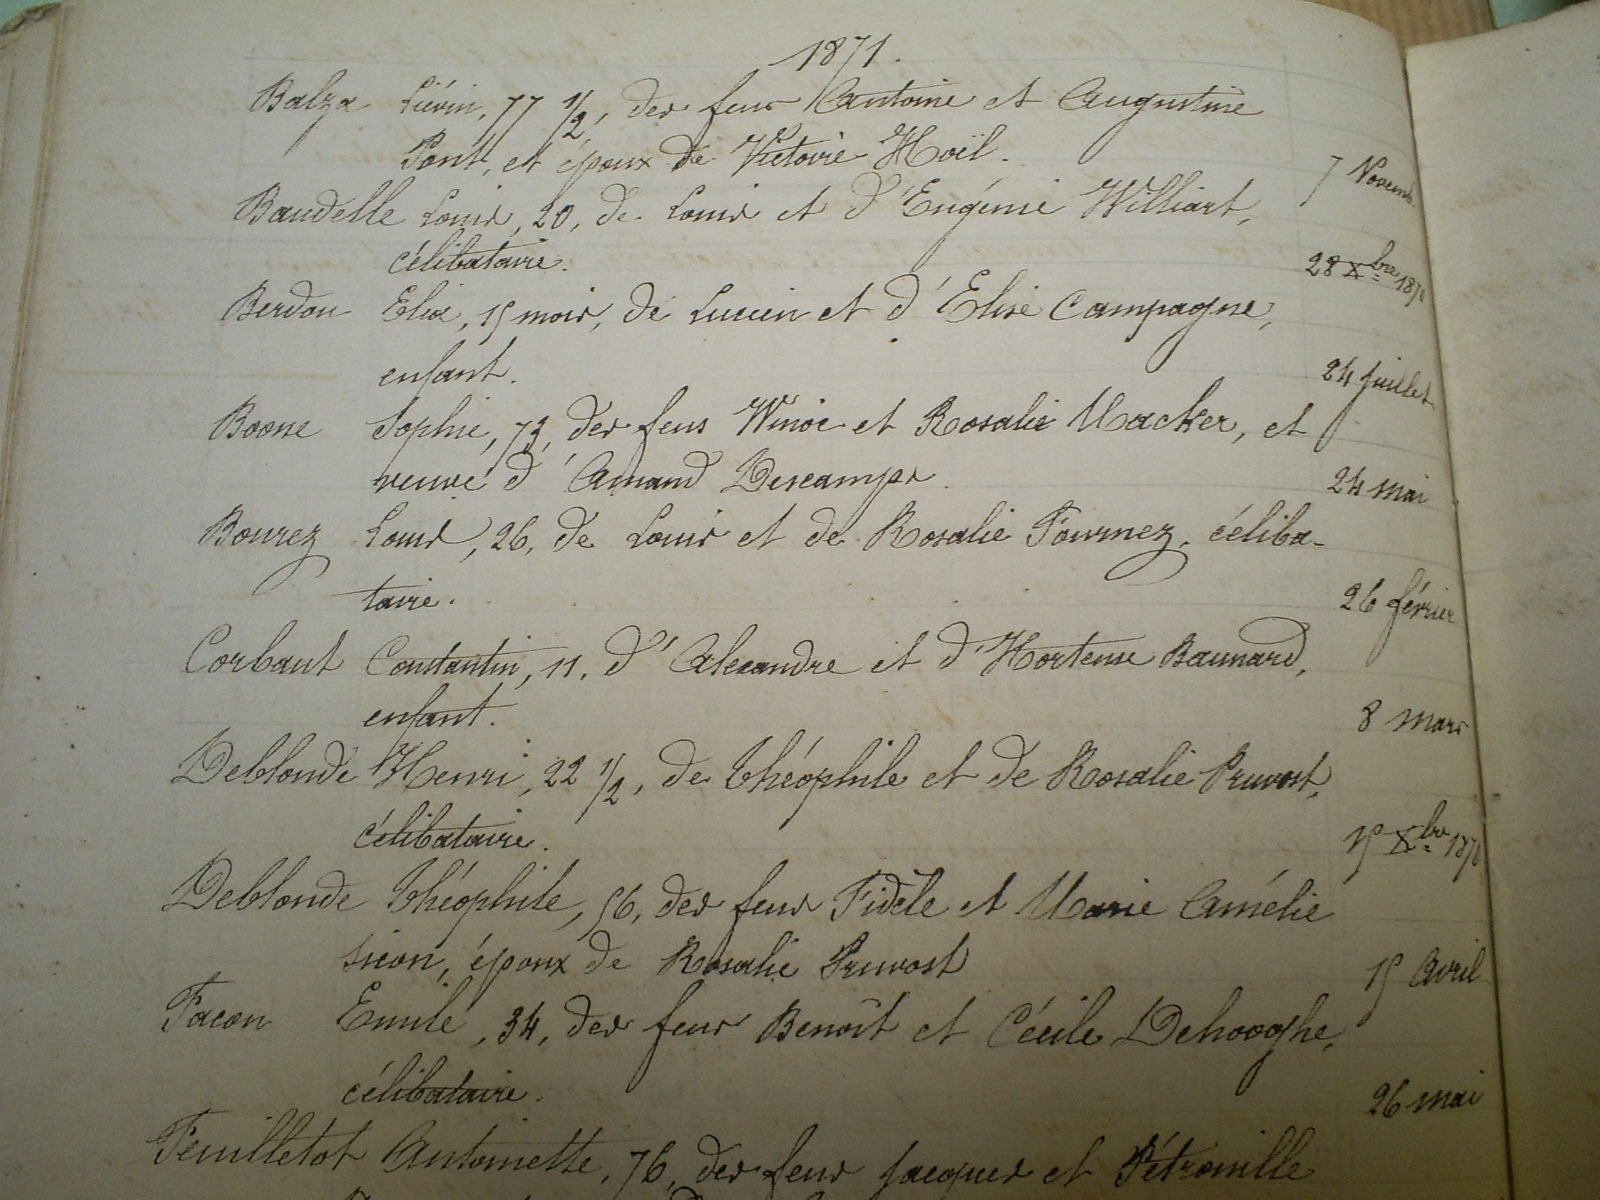 1871.
Balza Liévin, 77 1/2, des feus Antoine et Augustine
Pont, et époux de Victoire Hoïl.
7 Novemb.
Baudelle Louis, 20, de Louis et d'Eugénie Williart,
célibataire.
28 Xbre 1870
Berdou Elise, 15 mois, de Lucien et d'Elise Campagne,
enfant.
24 juillet
Boone Sophie, 73, des feus Winoc et Rosalie Macker, et
veuve d'Amand Descamps.
24 mai
Bourez Louis, 26, de Louis et de Rosalie Fournez, céliba-
taire.
26 février
Corbaut Constantin, 11, d'Alexandre et d'Hortense Baunard,
enfant.
8 mars
Deblonde Henri, 22 1/2, de Théophile et de Rosalie Pruvost,
célibataire.
15 Xbre 1870
Deblonde Théophile, 56, des feus Fidèle et Marie Amélie
Sicon, époux de Rosalie Pruvost
15 Avril
Facon Emile, 34, des feus Benoît et Cécile Dehooghe,
célibataire.
26 mai
Feuilletot Antoinette, 76, des feus Jacques et Pétronille